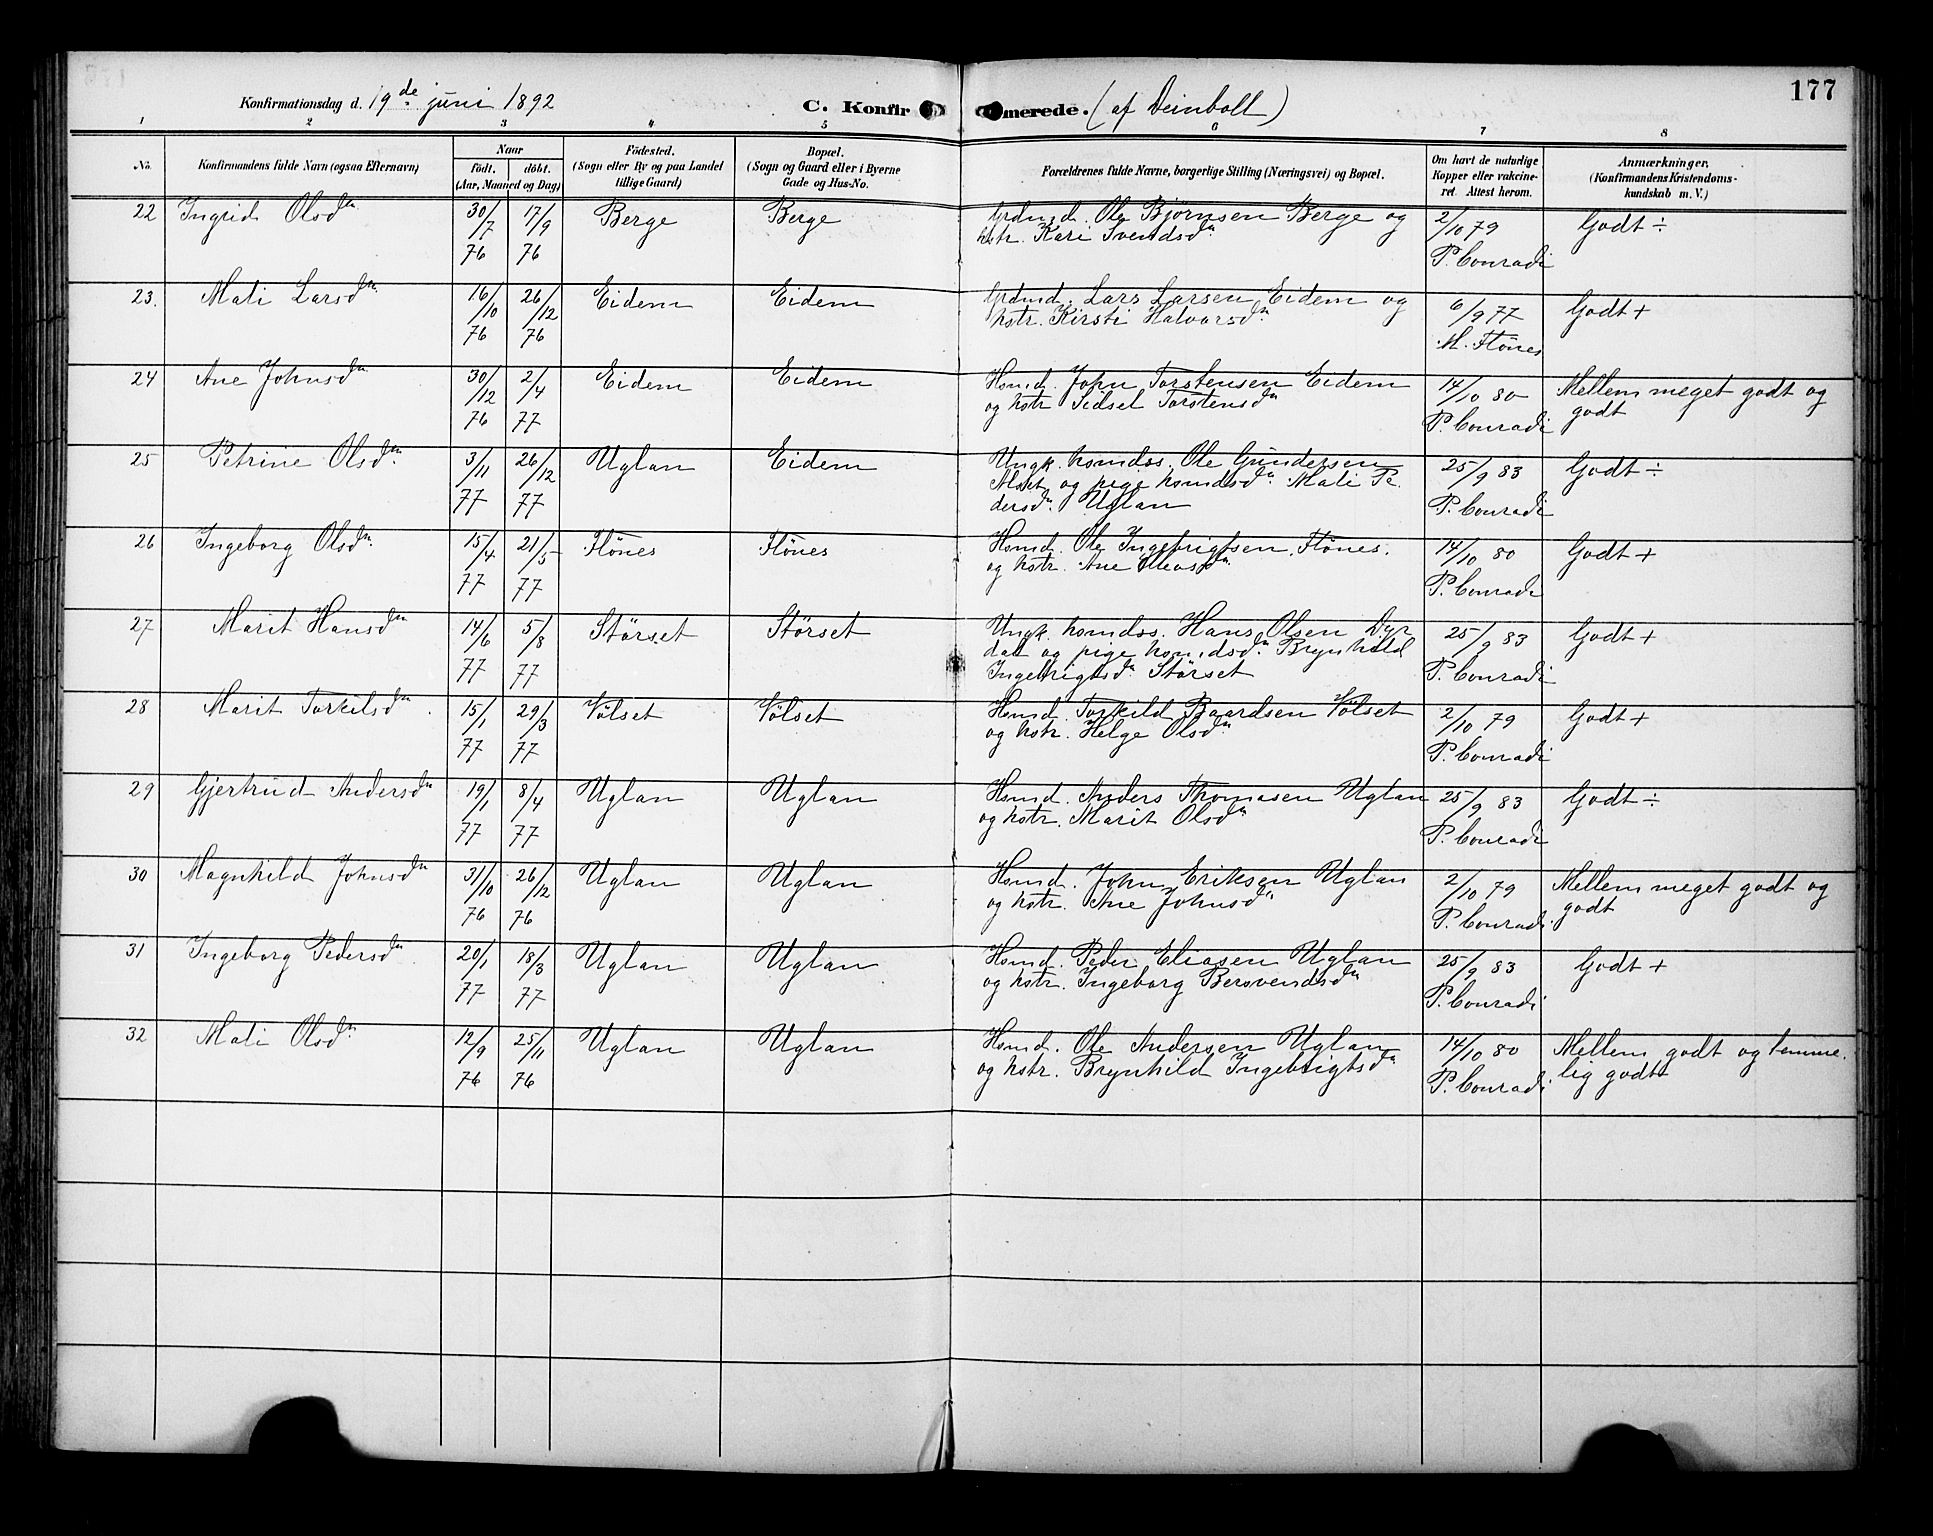 177
Konfirmationsdag d. 19de juni 1892 C. Konfirmerede. (af Deinboll)
1 2 3 4 5 6 7 8
No. Konfirmandens fulde Navn (ogsaa Efternavn) Naar födt. döbt. (Aar, Maaned og Dag) Födested. (Sogn eller By og paa Landet tillige Gaard) Bopæl. (Sogn og Gaard eller i Byerne Gade og Hus-No. Forældrenes fulde Navne, borgerlige Stilling (Næringsvei) og Bopæl. Om havt de naturlige Kopper eller vakcineret. Attest herom. Anmærkninger. (Konfirmandens Kristendomskundskab m. V.)
22 Ingrid Olsdn 30/7 76 17/9 76 Berge Berge Grdmd. Ole Bjørnsen Berge og 2/10 79 Godt ÷
hstr. Kari Svendsdn P. Conradi
23. Mali Larsdn 16/10 76 26/12 76 Eidem Eidem Grdmd. Lars Larsen Eidem og 6/9 77 Godt +
hstr. Kirsti Halvorsdn M. Flönes
24 Ane Johnsdn 30/12 76 2/4 77 Eidem Eidem Hsmd. John Torstensen Eidem 14/10 80 Mellem meget godt og
og hstr Sidsel Torstensdn P. Conradi godt
25 Petrine Olsdn 3/11 77 26/12 77 Uglan Eidem Ungk. hsmdss. Ole Gundersen 25/9 83 Godt ÷
og pige hsmdsdn Mali Pe
dersdn Uglan P. Conradi
26 Ingeborg Olsdn 15/4 77 21/5 77 Flönes Flönes Hsmd. Ole Ingebrigtsen Flönes. 14/10 80 Godt +
og hstr. Ane P. Conradi
27 Marit Hansdn 14/6 77 5/8 77 Störset Störset Ungk. hsmdss. Hans Olsen Dyr 25/9 83 Godt +
dal og pige hsmdsdn Brynhild
Ingebrigtsdn Störset P. Conradi
28 Marit Torkilsdn 15/1 77 29/3 77 Völset Völset Hsmd. Torkild Baardsen Völset 2/10 79 Godt +
og hstr. Helge Olsdn P. Conradi
29 Gjertrud Andersdn 19/1 77 8/4 77 Uglan Uglan Hsmd. Anders Thomasen Uglan 25/9 83 Godt ÷
og hstr. Marit Olsdn P. Conradi
30 Magnhild Johnsdn 31/10 76 26/12 76 Uglan Uglan Hsmd. John Eriksen Uglan 2/10 79 Mellem meget godt og
og hstr. Ane Johnsdn P. Conradi. godt
31 Ingeborg Pedersdn 20/1 77 18/3 77 Uglan Uglan Hsmd. Peder Eliasen Uglan 25/9 83 Godt +
og hstr. Ingeborg Bersvendsdn P. Conradi
32 Mali Olsdn 12/9 76 25/11 76 Uglan Uglan Hsmd. Ole Andersen Uglan 14/10 80 Mellem godt og temme.
og hstr. Brynhild Ingebrigtsdn P. Conradi. lig godt